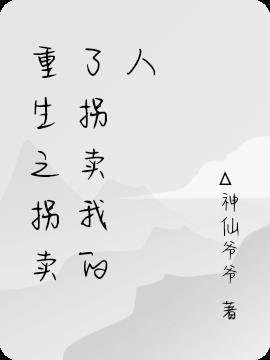 重生之拐卖
了拐卖我的
人
Δ神仙爷爷 著